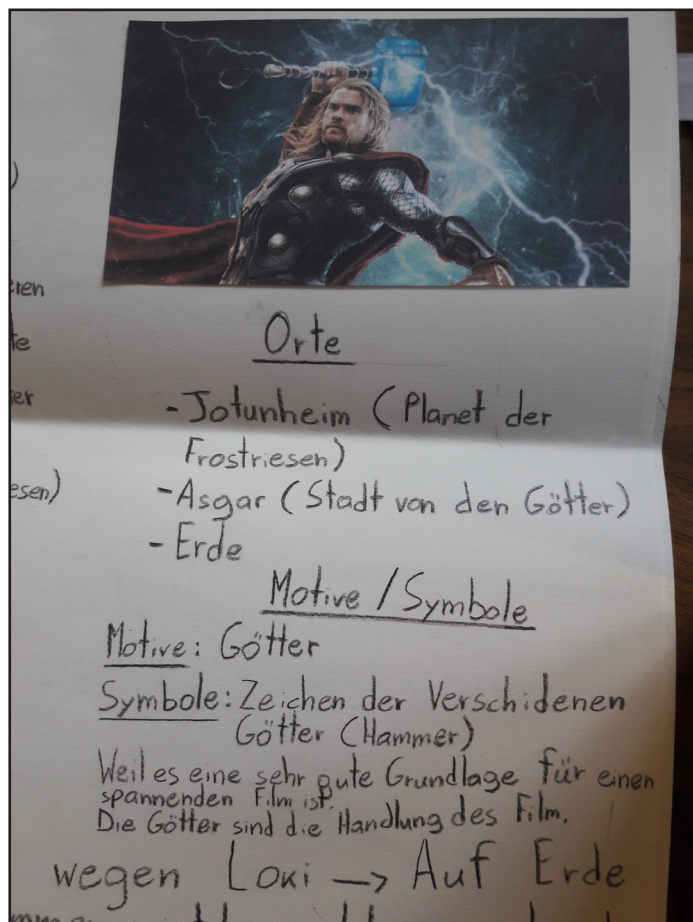 Orte
- Jotunheim (Planet der
Frostriesen)
- Asgar (Stadt von den Götter)
- Erde
Motive / Symbole
Motive: Götter
Symbole: Zeichen der Verschidenen
Götter (Hammer)
Weil es eine sehr gute Grundlage für einen
spannenden Film ist.
Die Götter sind die Handlung des Film.
wegen Loki → Auf Erde